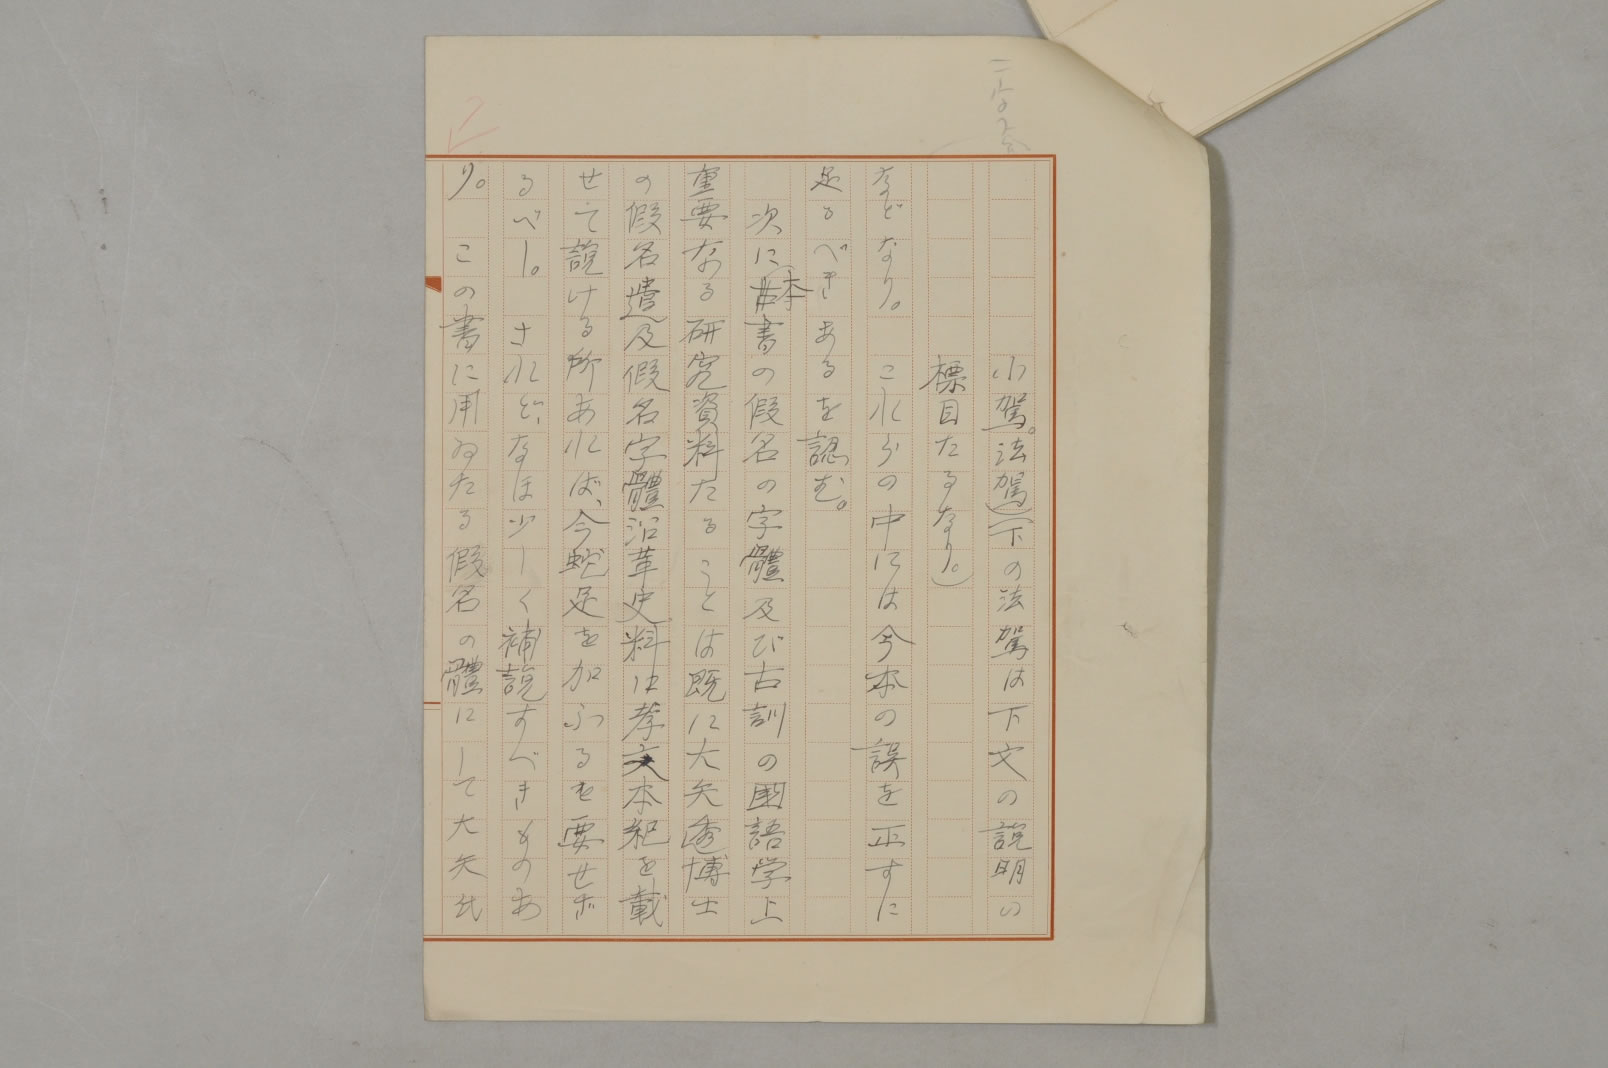 小駕。法駕(下の法駕は下文の説明の
標目たるなり。)
などなり。 これらの中には今本の誤を正すに
足るべきあるを認む。
次に本書の假名の字體及び古訓の国語学上
重要なる研究資料たることは既に大矢透博士
の假名遣及假名字體沿革史料に孝文本紀を載
せて説ける所あれば、今蛇足を加ふるを要せざ
るべし。 されど、なほ少しく補説すべきものあ
り。 この書に用ゐたる假名の體にして大矢氏